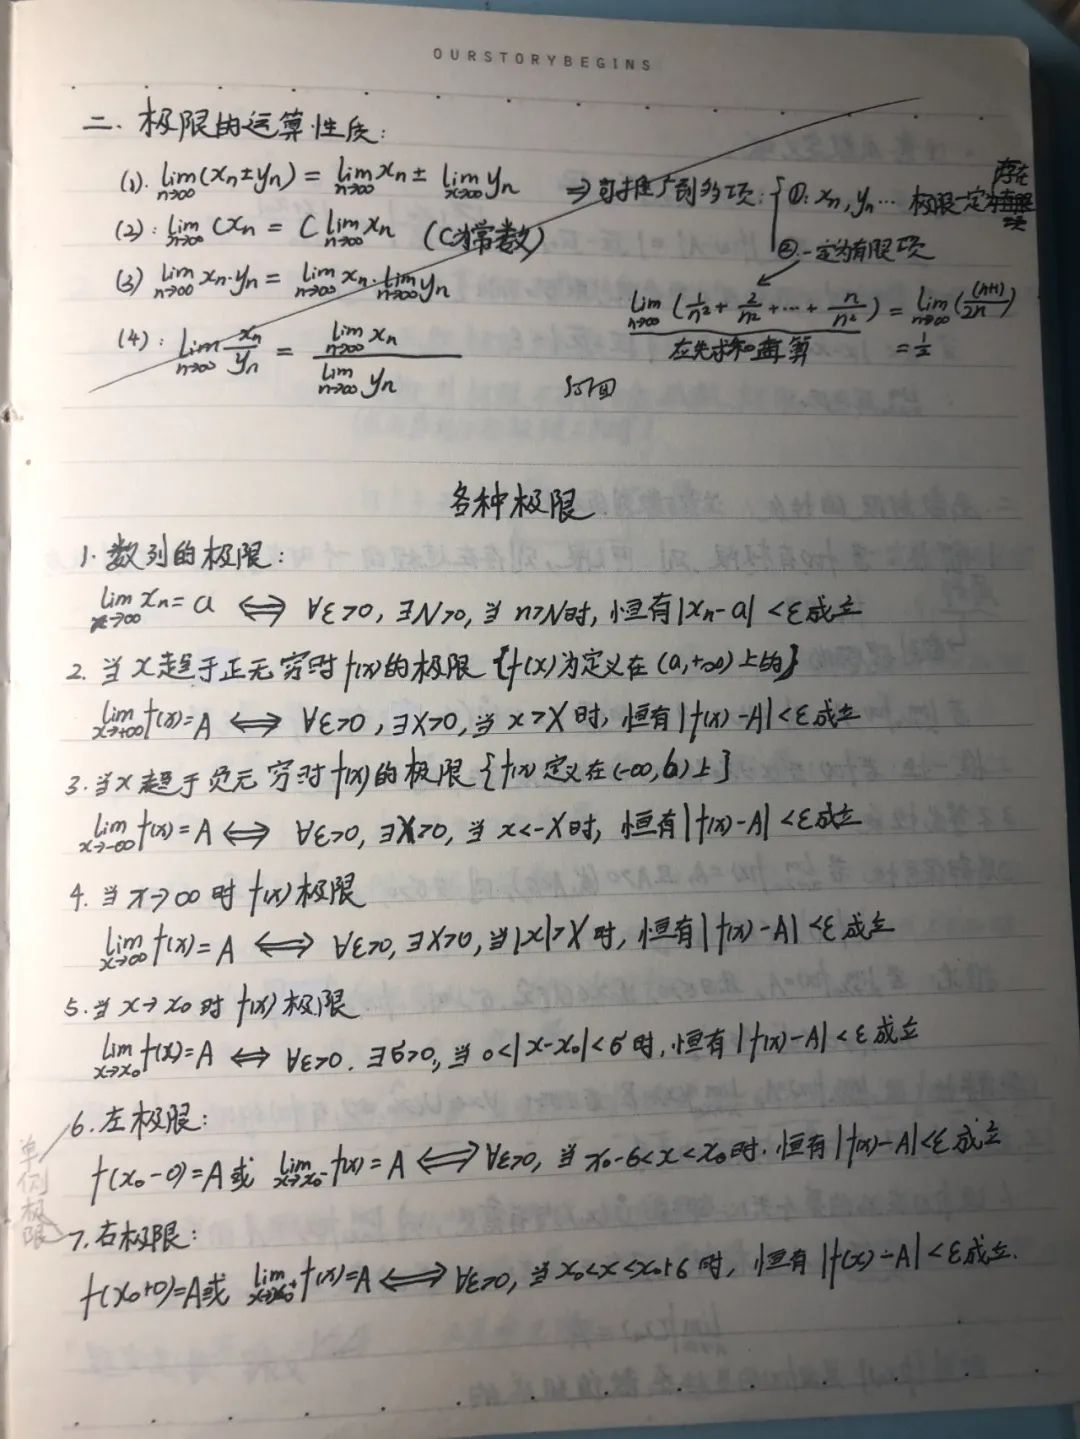 OURSTORYBEGINS
二、极限的运算性质：
(1). lim n→∞ (xn±yn) = lim n→∞ xn ± lim x→∞ yn ⇒ 可推广到多项：{ ①: xn, yn … 极限一定存在
(2): lim n→∞ Cxn = C lim n→∞ xn (C为常数) ②一定为有限项
(3) lim n→∞ xn·yn = lim n→∞ xn · lim n→∞ yn
lim n→∞ (1/n² + 2/n² + … + n/n²) = lim n→∞ ((n+1)/2n)
应先求和再算 = 1/2
(4): lim n→∞ xn/yn = lim n→∞ xn / lim n→∞ yn
各种极限
1. 数列的极限：
lim x→∞ xn = a ⟺ ∀ε>0, ∃N>0, 当 n>N时, 恒有|xn-a|<ε成立
2. 当x趋于正无穷时f(x)的极限 {f(x)为定义在(a,+∞)上的}
lim x→+∞ f(x)=A ⟺ ∀ε>0, ∃X>0, 当 x>X时, 恒有|f(x)-A|<ε成立
3. 当x趋于负无穷时f(x)的极限 {f(x)定义在(-∞,b)上]
lim x→-∞ f(x)=A ⟺ ∀ε>0, ∃X>0, 当 x<-X时, 恒有|f(x)-A|<ε成立
4. 当x→∞时f(x)极限
lim x→∞ f(x)=A ⟺ ∀ε>0, ∃X>0, 当|x|>X时, 恒有|f(x)-A|<ε成立
5. 当x→x0时f(x)极限
lim x→x0 f(x)=A ⟺ ∀ε>0. ∃δ>0, 当 0<|x-x0|<δ时, 恒有|f(x)-A|<ε成立
单侧极限
6. 左极限：
f(x0-0)=A或 lim x→x0⁻ f(x)=A ⟺ ∀ε>0, 当 x0-δ<x<x0时. 恒有|f(x)-A|<ε成立
7. 右极限：
f(x0+0)=A或 lim x→x0⁺ f(x)=A ⟺ ∀ε>0, 当 x0<x<x0+δ时, 恒有|f(x)-A|<ε成立.